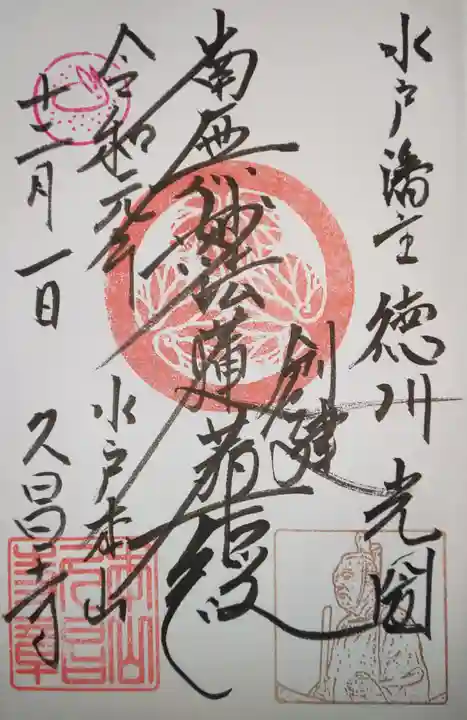 水戸藩主 徳川光圀
創建
南無妙法蓮華経
水戸本山
久昌寺
令和元年
十二月一日